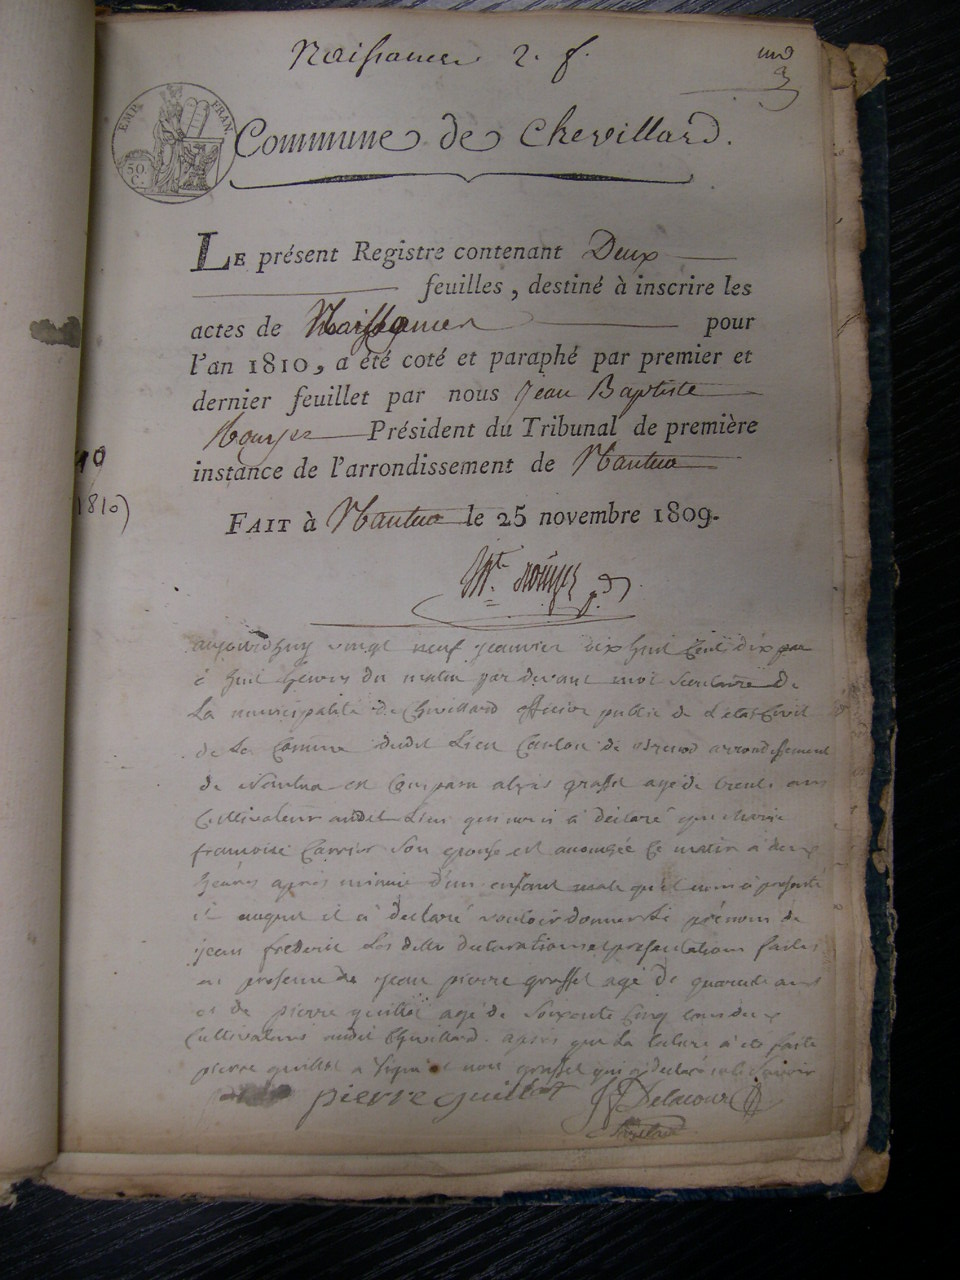 Naissances 2. f.
EMP. FRAN.
50.
C.
Commune de Chevillard.
LE présent Registre contenant Deux
feuilles, destiné à inscrire les
actes de Naissances pour
l'an 1810, a été coté et paraphé par premier et
dernier feuillet par nous Jean Baptiste
Président du Tribunal de première
instance de l'arrondissement de Nantua
FAIT à Nantua le 25 novembre 1809.
1810)
aujourdhuy vingt neuf janvier dix huit cent dix par
huit heures du matin par devant moi secretaire de
La municipalité de Chevillard officier public de L'état Civil
de La Commune dudit Lieu Canton de arrondissement
de Nantua est Comparu grosset agé de trente ans
Cultivateur audit Lieu qui a déclaré que
francoise Carrier son epouse est accouchée Ce matin à deux
heures après minuit d'un enfant male qu'il présenté
et auquel il à declaré vouloir donner Le prénom de
jean frederic Les dittes declarations et presentations faites
en presence de jean pierre grosset agé de quarante ans
et de pierre guillot agé de soixante Cinq tous deux
Cultivateurs audit Chevillard. après que La lecture à été faite
pierre guillot a signé et non grosset qui à declaré ne Savoir
pierre guillot Delacour